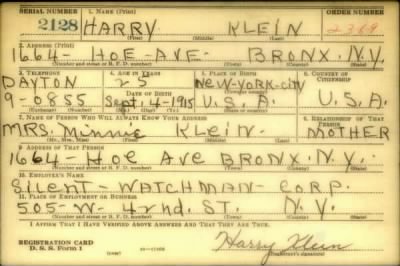 SERIAL NUMBER 1. NAME (Print) ORDER NUMBER
2128 HARRY KLEIN 2369
2. ADDRESS (Print)
1664- HOE-AVE- BRONX. N.Y.
(Number and street or R. F. D. number) (Town) (County) (State)
3. TELEPHONE 4. AGE IN YEARS 5. PLACE OF BIRTH 6. COUNTRY OF CITIZENSHIP
DAYTON 25 NEW-YORK-CITY
DATE OF BIRTH
9-0855 Sept. 4-1915 U.S.A. U.S.A.
(Exchange) (Number) (Mo.) (Day) (Yr.) (State or country)
7. NAME OF PERSON WHO WILL ALWAYS KNOW YOUR ADDRESS 8. RELATIONSHIP OF THAT PERSON
MRS. Minnie KLEIN. MOTHER
(Mr., Mrs., Miss) (First) (Middle) (Last)
9. ADDRESS OF THAT PERSON
1664- HOE AVE BRONX. N.Y.
(Number and street or R. F. D. number) (Town) (County) (State)
10. EMPLOYER'S NAME
SILENT-WATCHMAN-CORP.
11. PLACE OF EMPLOYMENT OR BUSINESS
505-W- 42nd. ST. N.Y.
(Number and street or R. F. D. number) (Town) (County) (State)
I AFFIRM THAT I HAVE VERIFIED ABOVE ANSWERS AND THAT THEY ARE TRUE.
REGISTRATION CARD
D. S. S. Form 1
Harry Klein
(Registrant's signature)